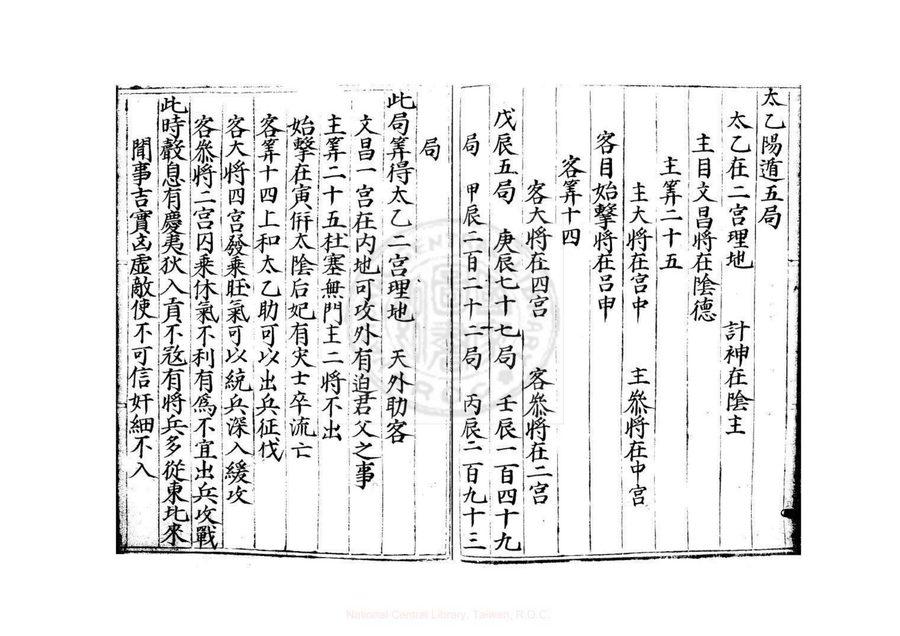 太乙陽遁五局
太乙在二宮理地　計神在陰主
主目文昌將在陰德
主筭二十五
主大將在宮中　主叅將在中宮
客目始擊將在呂申
客筭十四
客大將在四宮　客叅將在二宮
戊辰五局　庚辰七十七局　壬辰一百四十九
局　甲辰二百二十二局　丙辰二百九十三
局
此局筭得太乙二宮理地　天外助客
文昌一宮在内地可攻外有迫君父之事
主筭二十五杜塞無門主二將不出
始擊在寅併太陰后妃有灾士卒流亡
客筭十四上和太乙助可以出兵征伐
客大將四宮發乘旺氣可以統兵深入緩攻
客叅將二宮囚乘休氣不利有爲不宜出兵攻戰
此時嗀息有慶夷狄入貢不冦有將兵多從東北來
聞事吉實凶虛敵使不可信奸細不入
National Central Library, Taiwan, R.O.C.